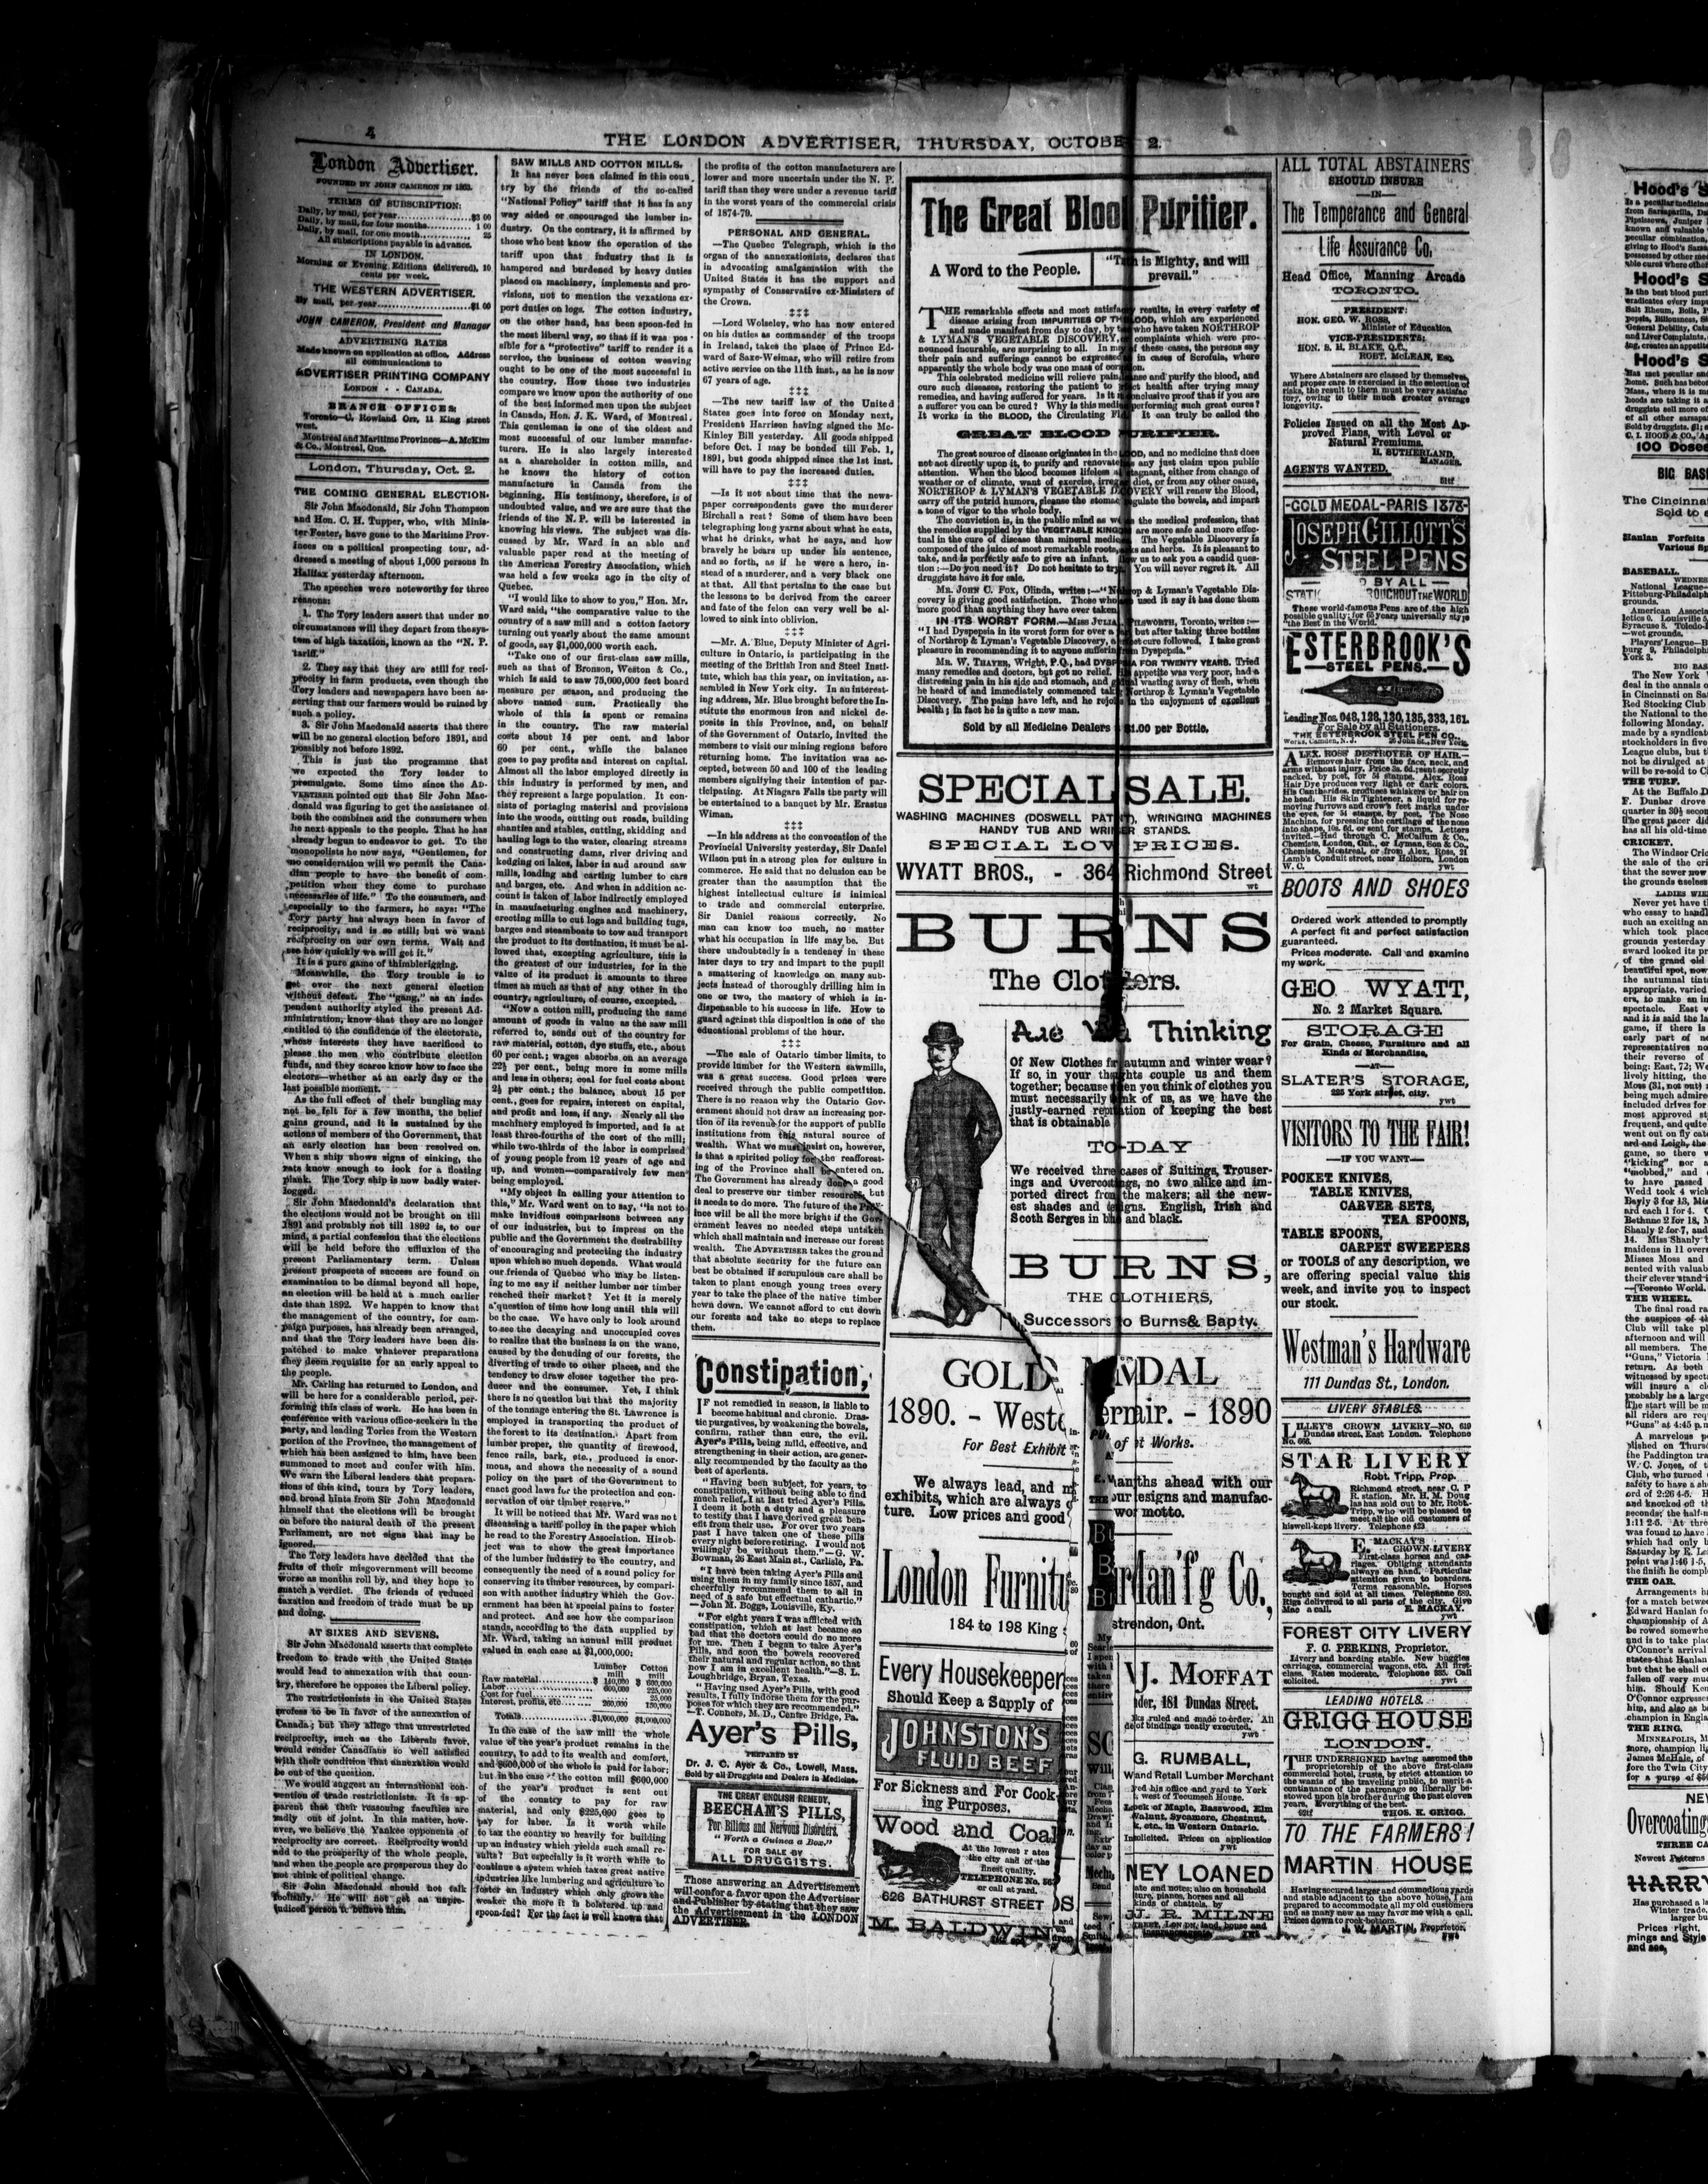 4
THE LONDON ADVERTISER, THURSDAY, OCTOBE 2.
London Advertiser.
FOUNDED BY JOHN CAMERON IN 1863.
TERMS OF SUBSCRIPTION:
Daily, by mail, per year $3 00
Daily, by mail, for four months 1 00
Daily, by mail, for one month 25
All subscriptions payable in advance.
IN LONDON.
Morning or Evening Editions (delivered), 10
cents per week.
THE WESTERN ADVERTISER.
By mail, per year $1 00
JOHN CAMERON, President and Manager
ADVERTISING RATES
Made known on application at office. Address
all communications to
ADVERTISER PRINTING COMPANY
LONDON - - CANADA.
BRANCH OFFICES:
Toronto—C. Howland Orr, 11 King street
west.
Montreal and Maritime Provinces—A. McKim
& Co., Montreal, Que.
London, Thursday, Oct. 2.
THE COMING GENERAL ELECTION.
Sir John Macdonald, Sir John Thompson
and Hon. C. H. Tupper, who, with Minis-
ter Foster, have gone to the Maritime Prov-
inces on a political prospecting tour, ad-
dressed a meeting of about 1,000 persons in
Halifax yesterday afternoon.
The speeches were noteworthy for three
reasons:
1. The Tory leaders assert that under no
circumstances will they depart from the sys-
tem of high taxation, known as the "N. P.
tariff."
2. They say that they are still for reci-
procity in farm products, even though the
Tory leaders and newspapers have been as-
serting that our farmers would be ruined by
such a policy.
3. Sir John Macdonald asserts that there
will be no general election before 1891, and
possibly not before 1892.
This is just the programme that
we expected the Tory leader to
promulgate. Some time since the AD-
VERTISER pointed out that Sir John Mac-
donald was figuring to get the assistance of
both the combines and the consumers when
he next appeals to the people. That he has
already begun to endeavor to get. To the
monopolists he now says, "Gentlemen, for
no consideration will we permit the Cana-
dian people to have the benefit of com-
petition when they come to purchase
necessaries of life." To the consumers, and
especially to the farmers, he says: "The
Tory party has always been in favor of
reciprocity, and is so still; but we want
reciprocity on our own terms. Wait and
see how quickly we will get it."
It is a pure game of thimblerigging.
Meanwhile, the Tory trouble is to
get over the next general election
without defeat. The "gang," as an inde-
pendent authority styled the present Ad-
ministration, know that they are no longer
entitled to the confidence of the electorate,
whose interests they have sacrificed to
please the men who contribute election
funds, and they scarce know how to face the
electors—whether at an early day or the
last possible moment.
As the full effect of their bungling may
not be felt for a few months, the belief
gains ground, and it is sustained by the
actions of members of the Government, that
an early election has been resolved on.
When a ship shows signs of sinking, the
rats know enough to look for a floating
plank. The Tory ship is now badly water-
logged.
Sir John Macdonald's declaration that
the elections would not be brought on till
1891 and probably not till 1892 is, to our
mind, a partial confession that the elections
will be held before the effluxion of the
present Parliamentary term. Unless
present prospects of success are found on
examination to be dismal beyond all hope,
an election will be held at a much earlier
date than 1892. We happen to know that
the management of the country, for cam-
paign purposes, has already been arranged,
and that the Tory leaders have been dis-
patched to make whatever preparations
they deem requisite for an early appeal to
the people.
Mr. Carling has returned to London, and
will be here for a considerable period, per-
forming this class of work. He has been in
conference with various office-seekers in the
party, and leading Tories from the Western
portion of the Province, the management of
which has been assigned to him, have been
summoned to meet and confer with him.
We warn the Liberal leaders that prepara-
tions of this kind, tours by Tory leaders,
and broad hints from Sir John Macdonald
himself that the elections will be brought
on before the natural death of the present
Parliament, are not signs that may be
ignored.
The Tory leaders have decided that the
fruits of their misgovernment will become
worse as months roll by, and they hope to
snatch a verdict. The friends of reduced
taxation and freedom of trade must be up
and doing.
AT SIXES AND SEVENS.
Sir John Macdonald asserts that complete
freedom to trade with the United States
would lead to annexation with that coun-
try, therefore he opposes the Liberal policy.
The restrictionists in the United States
profess to be in favor of the annexation of
Canada; but they allege that unrestricted
reciprocity, such as the Liberals favor,
would render Canadians so well satisfied
with their condition that annexation would
be out of the question.
We would suggest an international con-
vention of trade restrictionists. It is ap-
parent that their reasoning faculties are
sadly out of joint. In this matter, how-
ever, we believe the Yankee opponents of
reciprocity are correct. Reciprocity would
add to the prosperity of the whole people,
and when the people are prosperous they do
not think of political change.
Sir John Macdonald should not talk
foolishly. He will not get an unpre-
judiced person to believe him.
SAW MILLS AND COTTON MILLS.
It has never been claimed in this coun
try by the friends of the so-called
"National Policy" tariff that it has in any
way aided or encouraged the lumber in-
dustry. On the contrary, it is affirmed by
those who best know the operation of the
tariff upon that industry that it is
hampered and burdened by heavy duties
placed on machinery, implements and pro-
visions, not to mention the vexations ex-
port duties on logs. The cotton industry,
on the other hand, has been spoon-fed in
the most liberal way, so that if it was pos
sible for a "protective" tariff to render it a
service, the business of cotton weaving
ought to be one of the most successful in
the country. How those two industries
compare we know upon the authority of one
of the best informed men upon the subject
in Canada, Hon. J. K. Ward, of Montreal.
This gentleman is one of the oldest and
most successful of our lumber manufac-
turers. He is also largely interested
as a shareholder in cotton mills, and
he knows the history of cotton
manufacture in Canada from the
beginning. His testimony, therefore, is of
undoubted value, and we are sure that the
friends of the N. P. will be interested in
knowing his views. The subject was dis-
cussed by Mr. Ward in an able and
valuable paper read at the meeting of
the American Forestry Association, which
was held a few weeks ago in the city of
Quebec.
"I would like to show to you," Hon. Mr.
Ward said, "the comparative value to the
country of a saw mill and a cotton factory
turning out yearly about the same amount
of goods, say $1,000,000 worth each.
"Take one of our first-class saw mills,
such as that of Bronson, Weston & Co.,
which is said to saw 75,000,000 feet board
measure per season, and producing the
above named sum. Practically the
whole of this is spent or remains
in the country. The raw material
costs about 14 per cent. and labor
60 per cent., while the balance
goes to pay profits and interest on capital.
Almost all the labor employed directly in
this industry is performed by men, and
they represent a large population. It con-
sists of portaging material and provisions
into the woods, cutting out roads, building
shanties and stables, cutting, skidding and
hauling logs to the water, clearing streams
and constructing dams, river driving and
kedging on lakes, labor in and around saw
mills, loading and carting lumber to cars
and barges, etc. And when in addition ac-
count is taken of labor indirectly employed
in manufacturing engines and machinery,
erecting mills to cut logs and building tugs,
barges and steamboats to tow and transport
the product to its destination, it must be al-
lowed that, excepting agriculture, this is
the greatest of our industries, for in the
value of its product it amounts to three
times as much as that of any other in the
country, agriculture, of course, excepted.
"Now a cotton mill, producing the same
amount of goods in value as the saw mill
referred to, sends out of the country for
raw material, cotton, dye stuffs, etc., about
60 per cent.; wages absorb on an average
22½ per cent., being more in some mills
and less in others; coal for fuel costs about
2½ per cent.; the balance, about 15 per
cent., goes for repairs, interest on capital,
and profit and loss, if any. Nearly all the
machinery employed is imported, and is at
least three-fourths of the cost of the mill;
while two-thirds of the labor is comprised
of young people from 12 years of age and
up, and women—comparatively few men
being employed.
"My object in calling your attention to
this," Mr. Ward went on to say, "is not to
make invidious comparisons between any
of our industries, but to impress on the
public and the Government the desirability
of encouraging and protecting the industry
upon which so much depends. What would
our friends of Quebec who may be listen-
ing to me say if neither lumber nor timber
reached their market? Yet it is merely
a question of time how long until this will
be the case. We have only to look around
to see the decaying and unoccupied coves
to realize that the business is on the wane,
caused by the denuding of our forests, the
diverting of trade to other places, and the
tendency to draw closer together the pro-
ducer and the consumer. Yet, I think
there is no question but that the majority
of the tonnage entering the St. Lawrence is
employed in transporting the product of
the forest to its destination. Apart from
lumber proper, the quantity of firewood,
fence rails, bark, etc., produced is enor-
mous, and shows the necessity of a sound
policy on the part of the Government to
enact good laws for the protection and con-
servation of our timber reserve."
It will be noticed that Mr. Ward was not
discussing a tariff policy in the paper which
he read to the Forestry Association. His ob-
ject was to show the great importance
of the lumber industry to the country, and
consequently the need of a sound policy for
conserving its timber resources, by compari-
son with another industry which the Gov-
ernment has been at special pains to foster
and protect. And see how the comparison
stands, according to the data supplied by
Mr. Ward, taking an annual mill product
valued in each case at $1,000,000:
Lumber Cotton
mill mill
Raw material $ 140,000 $ 600,000
Labor 600,000 225,000
Cost for fuel 25,000
Interest, profits, etc 260,000 150,000
Totals $1,000,000 $1,000,000
In the case of the saw mill the whole
value of the year's product remains in the
country, to add to its wealth and comfort,
and $600,000 of the whole is paid for labor;
but in the case of the cotton mill $600,000
of the year's product is sent out
of the country to pay for raw
material, and only $225,000 goes to
pay for labor. Is it worth while
to tax the country so heavily for building
up an industry which yields such small re-
sults? But especially is it worth while to
continue a system which taxes great native
industries like lumbering and agriculture to
foster an industry which only grows the
weaker the more it is bolstered up and
spoon-fed? For the fact is well known that
the profits of the cotton manufacturers are
lower and more uncertain under the N. P.
tariff than they were under a revenue tariff
in the worst years of the commercial crisis
of 1874-79.
PERSONAL AND GENERAL.
—The Quebec Telegraph, which is the
organ of the annexationists, declares that
in advocating amalgamation with the
United States it has the support and
sympathy of Conservative ex-Ministers of
the Crown.
‡‡‡
—Lord Wolseley, who has now entered
on his duties as commander of the troops
in Ireland, takes the place of Prince Ed-
ward of Saxe-Weimar, who will retire from
active service on the 11th inst., as he is now
67 years of age.
‡‡‡
—The new tariff law of the United
States goes into force on Monday next,
President Harrison having signed the Mc-
Kinley Bill yesterday. All goods shipped
before Oct. 1 may be bonded till Feb. 1,
1891, but goods shipped since the 1st inst.
will have to pay the increased duties.
‡‡‡
—Is it not about time that the news-
paper correspondents gave the murderer
Birchall a rest? Some of them have been
telegraphing long yarns about what he eats,
what he drinks, what he says, and how
bravely he bears up under his sentence,
and so forth, as if he were a hero, in-
stead of a murderer, and a very black one
at that. All that pertains to the case but
the lessons to be derived from the career
and fate of the felon can very well be al-
lowed to sink into oblivion.
‡‡‡
—Mr. A. Blue, Deputy Minister of Agri-
culture in Ontario, is participating in the
meeting of the British Iron and Steel Insti-
tute, which has this year, on invitation, as-
sembled in New York city. In an interest-
ing address, Mr. Blue brought before the In-
stitute the enormous iron and nickel de-
posits in this Province, and, on behalf
of the Government of Ontario, invited the
members to visit our mining regions before
returning home. The invitation was ac-
cepted, between 50 and 100 of the leading
members signifying their intention of par-
ticipating. At Niagara Falls the party will
be entertained to a banquet by Mr. Erastus
Wiman.
‡‡‡
—In his address at the convocation of the
Provincial University yesterday, Sir Daniel
Wilson put in a strong plea for culture in
commerce. He said that no delusion can be
greater than the assumption that the
highest intellectual culture is inimical
to trade and commercial enterprise.
Sir Daniel reasons correctly. No
man can know too much, no matter
what his occupation in life may be. But
there undoubtedly is a tendency in these
later days to try and impart to the pupil
a smattering of knowledge on many sub-
jects instead of thoroughly drilling him in
one or two, the mastery of which is in-
dispensable to his success in life. How to
guard against this disposition is one of the
educational problems of the hour.
‡‡‡
—The sale of Ontario timber limits, to
provide lumber for the Western sawmills,
was a great success. Good prices were
received through the public competition.
There is no reason why the Ontario Gov-
ernment should not draw an increasing por-
tion of its revenue for the support of public
institutions from this natural source of
wealth. What we must insist on, however,
is that a spirited policy for the reafforest-
ing of the Province shall be entered on.
The Government has already done a good
deal to preserve our timber resources, but
it needs to do more. The future of the Prov-
ince will be all the more bright if the Gov-
ernment leaves no needed steps untaken
which shall maintain and increase our forest
wealth. The ADVERTISER takes the ground
that absolute security for the future can
best be obtained if scrupulous care shall be
taken to plant enough young trees every
year to take the place of the native timber
hewn down. We cannot afford to cut down
our forests and take no steps to replace
them.
Constipation,
IF not remedied in season, is liable to
become habitual and chronic. Dras-
tic purgatives, by weakening the bowels,
confirm, rather than cure, the evil.
Ayer's Pills, being mild, effective, and
strengthening in their action, are gener-
ally recommended by the faculty as the
best of aperients.
"Having been subject, for years, to
constipation, without being able to find
much relief, I at last tried Ayer's Pills.
I deem it both a duty and a pleasure
to testify that I have derived great ben-
efit from their use. For over two years
past I have taken one of these pills
every night before retiring. I would not
willingly be without them."—G. W.
Bowman, 26 East Main st., Carlisle, Pa.
"I have been taking Ayer's Pills and
using them in my family since 1857, and
cheerfully recommend them to all in
need of a safe but effectual cathartic."
—John M. Boggs, Louisville, Ky.
"For eight years I was afflicted with
constipation, which at last became so
bad that the doctors could do no more
for me. Then I began to take Ayer's
Pills, and soon the bowels recovered
their natural and regular action, so that
now I am in excellent health."—S. L.
Loughbridge, Bryan, Texas.
"Having used Ayer's Pills, with good
results, I fully indorse them for the pur-
poses for which they are recommended."
—T. Conners, M. D., Centre Bridge, Pa.
Ayer's Pills,
PREPARED BY
Dr. J. C. Ayer & Co., Lowell, Mass.
Sold by all Druggists and Dealers in Medicine.
THE GREAT ENGLISH REMEDY,
BEECHAM'S PILLS,
For Bilious and Nervous Disorders.
"Worth a Guinea a Box."
FOR SALE BY
ALL DRUGGISTS.
Those answering an Advertisement
will confer a favor upon the Advertiser
and Publisher by stating that they saw
the Advertisement in the LONDON
ADVERTISER.
The Great Blood Purifier.
A Word to the People.
"Truth is Mighty, and will
prevail."
THE remarkable effects and most satisfac results, in every variety of
disease arising from IMPURITIES OF TH BLOOD, which are experienced
and made manifest from day to day, by t who have taken NORTHROP
& LYMAN'S VEGETABLE DISCOVERY, complaints which were pro-
nounced incurable, are surprising to all. In m of these cases, the persons say
their pain and sufferings cannot be expressed in cases of Scrofula, where
apparently the whole body was one mass of cor on.
This celebrated medicine will relieve pain, se and purify the blood, and
cure such diseases, restoring the patient to ct health after trying many
remedies, and having suffered for years. Is it n conclusive proof that if you are
a sufferer you can be cured? Why is this medi performing such great cures?
It works in the BLOOD, the Circulating Fl It can truly be called the
GREAT BLOOD PURIFIER.
The great source of disease originates in the LOOD, and no medicine that does
not act directly upon it, to purify and renovate any just claim upon public
attention. When the blood becomes lifeless tagnant, either from change of
weather or of climate, want of exercise, irreg diet, or from any other cause,
NORTHROP & LYMAN'S VEGETABLE D OVERY will renew the Blood,
carry off the putrid humors, cleanse the stomac gulate the bowels, and impart
a tone of vigor to the whole body.
The conviction is, in the public mind as w the medical profession, that
the remedies supplied by the VEGETABLE KINGD are more safe and more effec-
tual in the cure of disease than mineral medic The Vegetable Discovery is
composed of the juice of most remarkable roots, s and herbs. It is pleasant to
take, and is perfectly safe to give an infant. w us to ask you a candid ques-
tion:—Do you need it? Do not hesitate to try You will never regret it. All
druggists have it for sale.
MR. JOHN C. FOX, Olinda, writes:—"No op & Lyman's Vegetable Dis-
covery is giving good satisfaction. Those who used it say it has done them
more good than anything they have ever taken
IN ITS WORST FORM.—MISS JULIA ILSWORTH, Toronto, writes:—
"I had Dyspepsia in its worst form for over a but after taking three bottles
of Northrop & Lyman's Vegetable Discovery, a ect cure followed. I take great
pleasure in recommending it to anyone sufferin om Dyspepsia."
MR. W. THAYER, Wright, P.Q., had DYSP A FOR TWENTY YEARS. Tried
many remedies and doctors, but got no relief. appetite was very poor, had a
distressing pain in his side and stomach, and g l wasting away of flesh, when
he heard of and immediately commenced taki Northrop & Lyman's Vegetable
Discovery. The pains have left, and he rejoi in the enjoyment of excellent
health; in fact he is quite a new man.
Sold by all Medicine Dealers $1.00 per Bottle.
SPECIAL SALE.
WASHING MACHINES (DOSWELL PAT T), WRINGING MACHINES
HANDY TUB AND WRI ER STANDS.
SPECIAL LOW PRICES.
WYATT BROS., - 364 Richmond Street
wt
BURNS
The Clothiers.
Are You Thinking
Of New Clothes f autumn and winter wear?
If so, in your th ghts couple us and them
together; because en you think of clothes you
must necessarily nk of us, as we have the
justly-earned rep ation of keeping the best
that is obtainable
TO-DAY
We received thre cases of Suitings, Trouser-
ings and Overcoa gs, no two alike and im-
ported direct from the makers; all the new-
est shades and igns. English, Irish and
Scoth Serges in bl and black.
BURNS,
THE CLOTHIERS,
Successors to Burns & Bapty.
GOLD M DAL
1890. - Weste ir. - 1890
For Best Exhibit of t Works.
We always lead, and ths ahead with our
exhibits, which are always our esigns and manufac-
ture. Low prices and good wor motto.
London Furnitu an'f'g Co.,
184 to 198 King st ndon, Ont.
Every Housekeeper
Should Keep a Supply of
JOHNSTON'S
FLUID BEEF
For Sickness and For Cook
ing Purposes.
Wood and Coal
At the lowest rates
the city and of the
finest quality.
TELEPHONE No.
or call at yard.
626 BATHURST STREET
M. BALDWIN
J. MOFFAT
der, 181 Dundas Street.
ks ruled and made to order. All
de of bindings neatly executed.
ywt
G. RUMBALL,
and Retail Lumber Merchant
ed his office and yard to York
west of Tecumseh House.
ock of Maple, Basswood, Elm
Walnut, Sycamore, Chestnut,
k, etc., in Western Ontario.
solicited. Prices on application
ywt
NEY LOANED
ate and notes; also on household
ture, pianos, horses and all
kinds of chattels, by
J. R. MILNE
ALL TOTAL ABSTAINERS
SHOULD INSURE
—IN—
The Temperance and General
Life Assurance Co.
Head Office, Manning Arcade
TORONTO.
PRESIDENT:
HON. GEO. W. ROSS,
Minister of Education
VICE-PRESIDENTS:
HON. S. H. BLAKE, Q.C.,
ROBT. McLEAN, Esq.
Where Abstainers are classed by themselves,
and proper care is exercised in the selection of
risks, the result to them must be very satisfac
tory, owing to their much greater average
longevity.
Policies Issued on all the Most Ap-
proved Plans, with Level or
Natural Premiums.
H. SUTHERLAND,
MANAGER.
AGENTS WANTED.
61tf
-GOLD MEDAL-PARIS 1878-
JOSEPH GILLOTT'S
STEEL PENS
D BY ALL
STATI ROUGHOUT THE WORLD
These world-famous Pens are of the high
possible quality; for 65 years universally styl
"the Best in the World.
ESTERBROOK'S
—STEEL PENS.—
Leading Nos. 048, 128, 130, 135, 333, 161.
For Sale by all Stationers.
THE ESTERBROOK STEEL PEN CO.,
Works, Camden, N. J. 26 John St., New York.
ALEX. ROSS' DESTROYER OF HAIR.—
Removes hair from the face, neck, and
arms without injury. Price 3s. 6d.; sent secretly
packed, by post, for 54 stamps. Alex. Ross
Hair Dye produces very light or dark colors.
His Cantharides, produces whiskers or hair on
he head. His Skin Tightener, a liquid for re-
moving furrows and crow's feet marks under
the eyes, for 54 stamps, by post. The Nose
Machine, for pressing the cartilage of the nose
into shape, 10s. 6d. or sent for stamps. Letters
invited.—Had through C. McCallum & Co.,
Chemists, London, Ont., or Lyman, Son & Co.,
Chemists, Montreal, or from Alex. Ross, 21
Lamb's Conduit street, near Holborn, London
W. C. ywt
BOOTS AND SHOES
Ordered work attended to promptly
A perfect fit and perfect satisfaction
guaranteed.
Prices moderate. Call and examine
my work.
GEO WYATT,
No. 2 Market Square.
STORAGE
For Grain, Cheese, Furniture and all
Kinds of Merchandise,
—AT—
SLATER'S STORAGE,
225 York street, city.
ywt
VISITORS TO THE FAIR!
—IF YOU WANT—
POCKET KNIVES,
TABLE KNIVES,
CARVER SETS,
TEA SPOONS,
TABLE SPOONS,
CARPET SWEEPERS
or TOOLS of any description, we
are offering special value this
week, and invite you to inspect
our stock.
Westman's Hardware
111 Dundas St., London.
LIVERY STABLES.
LILLEY'S CROWN LIVERY—NO. 619
Dundas street, East London. Telephone
No. 666.
STAR LIVERY
Robt. Tripp, Prop.
Richmond street, near C. P
R. station. Mr. H. M. Doug
las has sold out to Mr. Robt.
Tripp, who will be pleased to
meet all the old customers of
his well-kept livery. Telephone 423
E. MACKAY'S
CROWN LIVERY
First-class horses and car-
riages. Obliging attendants
always on hand. Particular
attention given to boarders.
Terms reasonable. Horses
bought and sold at all times. Telephone 689.
Rigs delivered to all parts of the city. Give
Mac a call. E. MACKAY.
ywt
FOREST CITY LIVERY
F. C. PERKINS, Proprietor.
Livery and boarding stable. New buggies
carriages, commercial wagons, etc. All first-
class. Rates moderate. Telephone 335. Call
solicited. ywt
LEADING HOTELS.
GRIGG HOUSE
LONDON.
THE UNDERSIGNED having assumed the
proprietorship of the above first-class
commercial hotel, trusts, by strict attention to
the wants of the traveling public, to merit a
continuance of the patronage so liberally be-
stowed upon his brother during the past eleven
years. Everything of the best.
92tf THOS. K. GRIGG.
TO THE FARMERS!
MARTIN HOUSE
Having secured larger and commodious yards
and stable adjacent to the above house, I am
prepared to accommodate all my old customers
and as many new as may favor me with a call.
Prices down to rock-bottom.
J. W. MARTIN, Proprietor.
ywt
Hood's S
Is a peculiar medicine
from Sarsaparilla, Dan
Pipsissewa, Juniper
known and valuable
peculiar combination,
giving to Hood's Sarsa
possessed by other med
able cures where other
Hood's S
Is the best blood puri
eradicates every impu
Salt Rheum, Boils, P
pepsia, Biliousness, Si
General Debility, Cata
and Liver Complaints,
ing, creates an appetite
Hood's S
100 Doses
BIG BAS
The Cincinnat
Sold to
Hanlan Forfeits
Various Sp
BASEBALL.
THE TURF.
CRICKET.
THE WHEEL.
THE OAR.
THE RING.
Overcoating
THREE CA
Newest Patterns
HARRY
Has purchased a
Winter trade,
larger bu
Prices right,
mings and Style
and see,